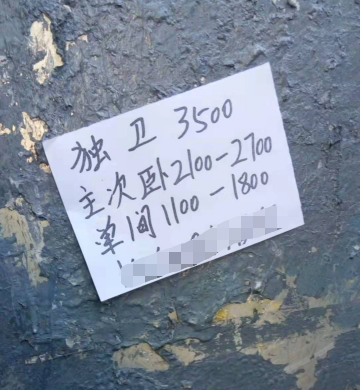 独卫 3500
主次卧 2100-2700
单间 1100-1800